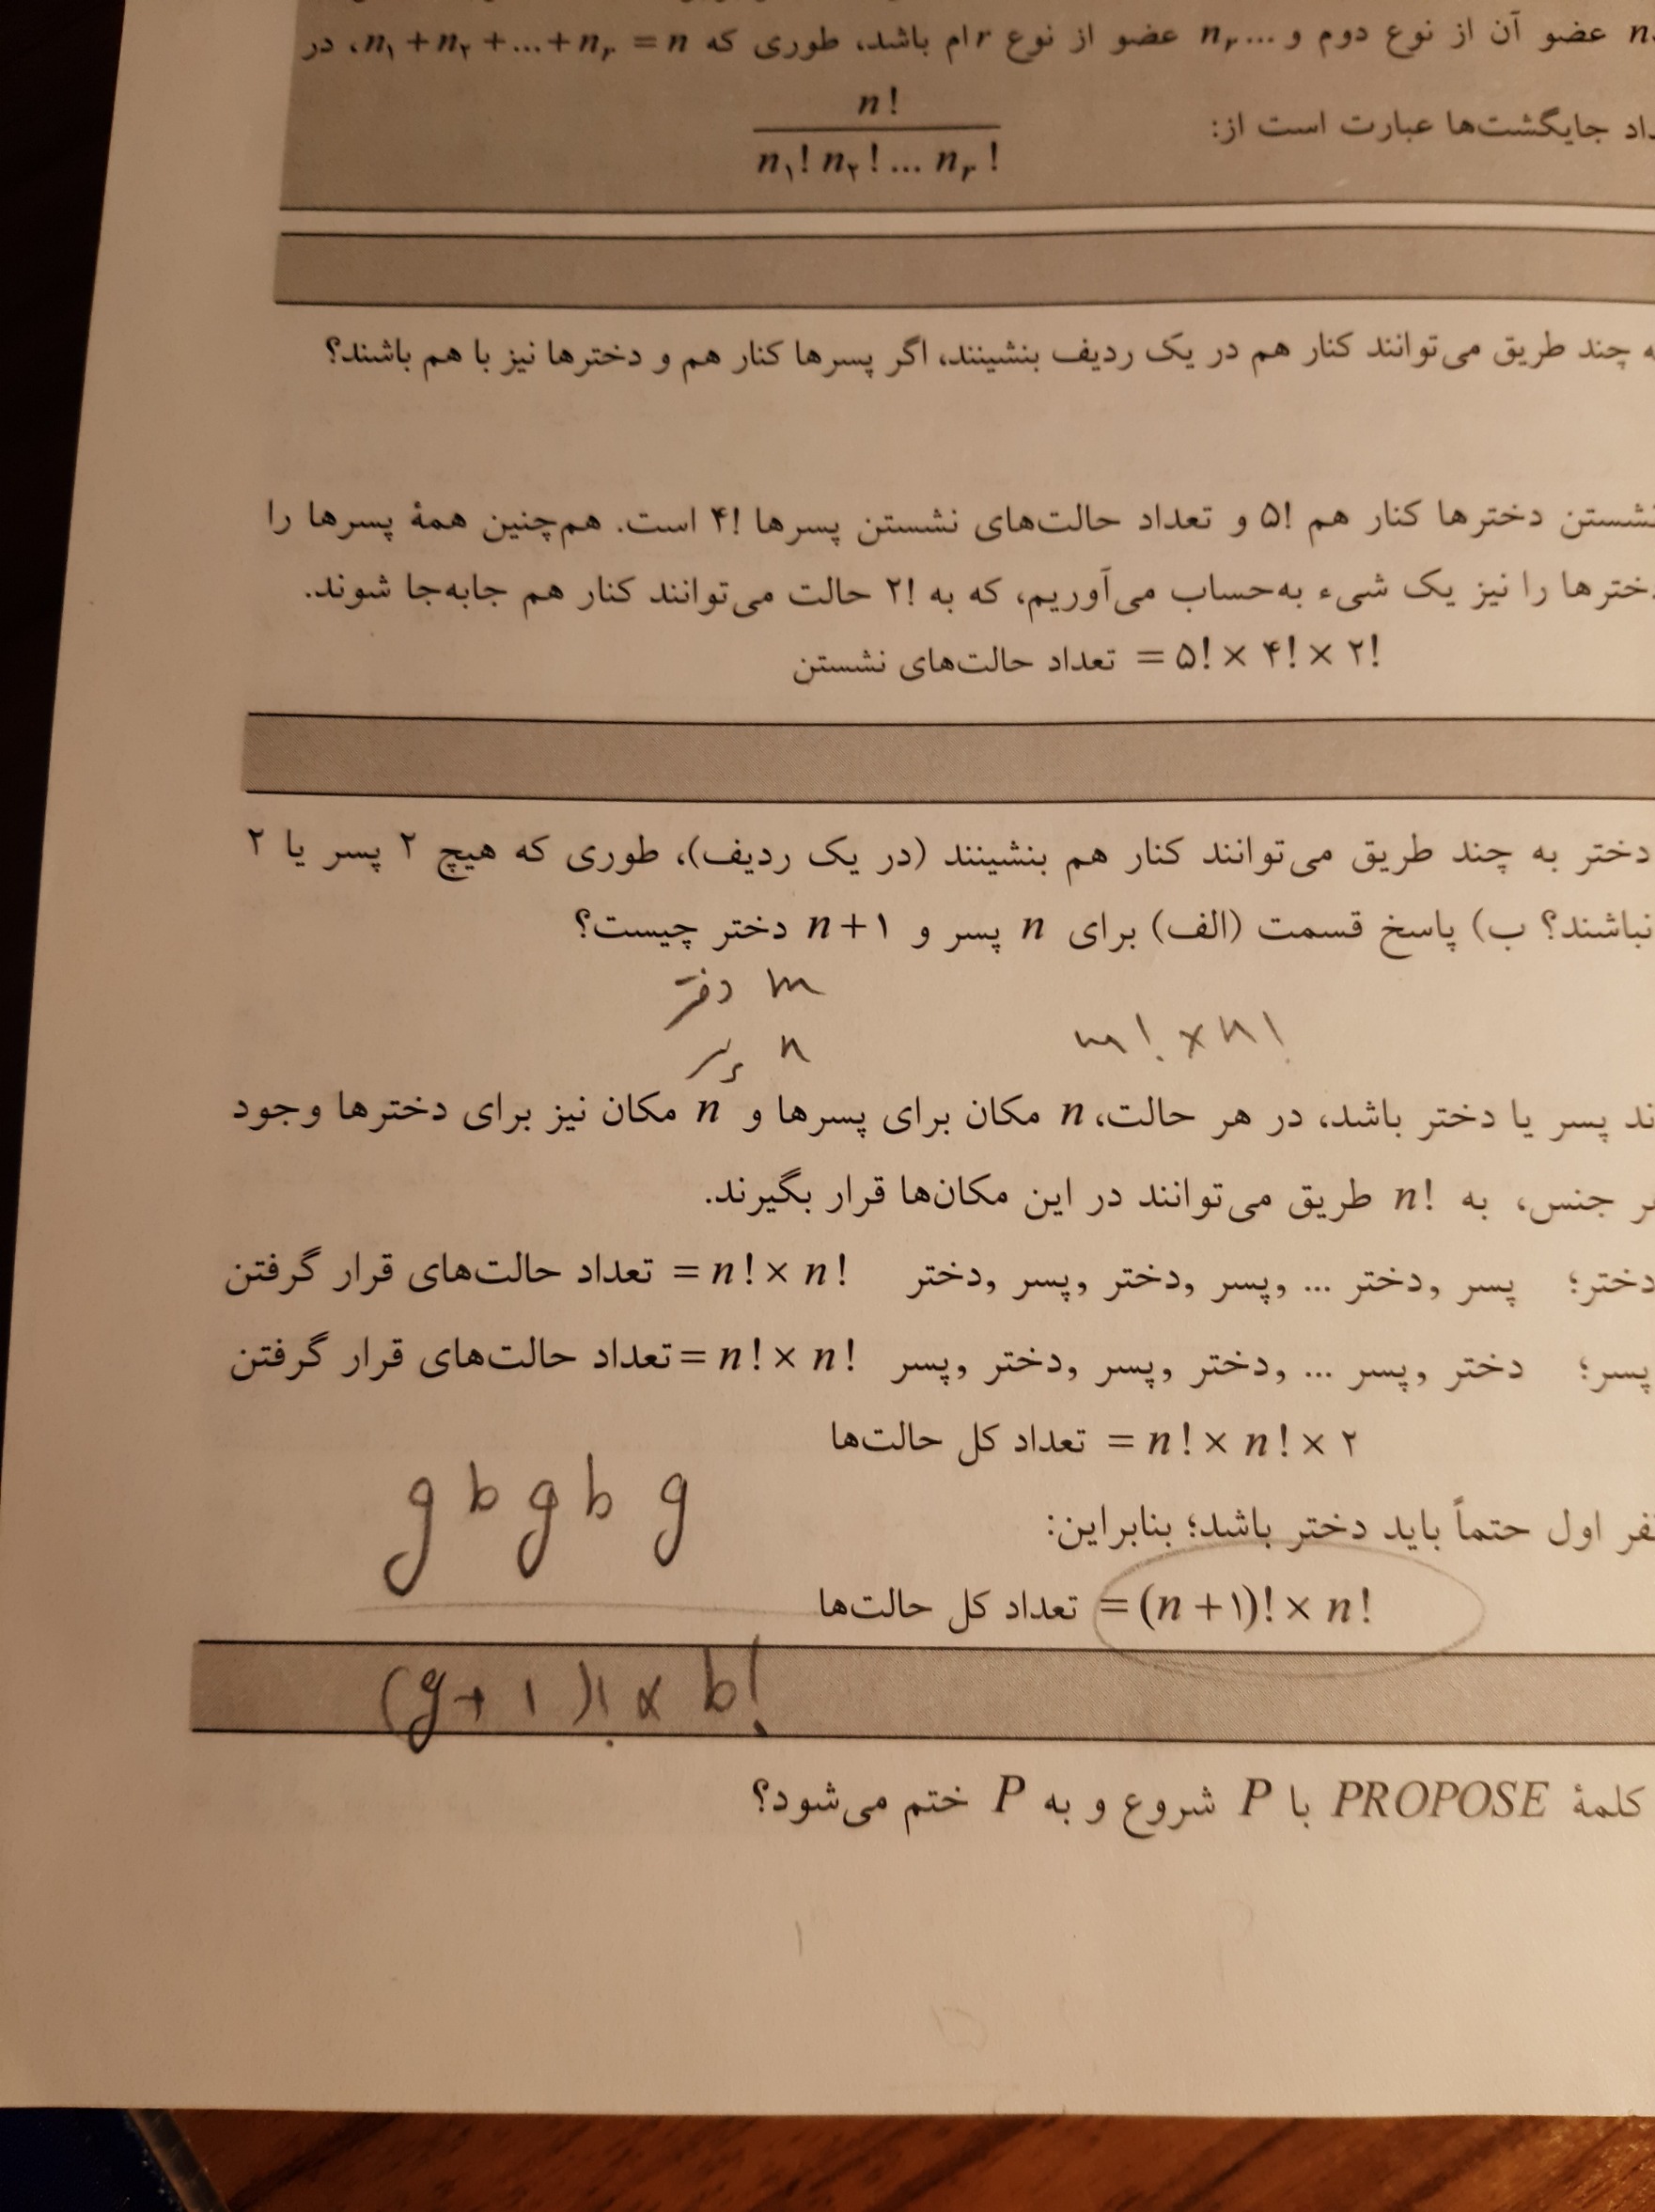 عضو آن از نوع دوم و ... nᵣ عضو از نوع r ام باشد، طوری که n₁ + n₂ + ... + nᵣ = n، در
جایگشت‌ها عبارت است از: n! / (n₁! n₂! ... nᵣ!)
چند طریق می‌توانند کنار هم در یک ردیف بنشینند، اگر پسرها کنار هم و دخترها نیز با هم باشند؟
نشستن دخترها کنار هم ۵! و تعداد حالت‌های نشستن پسرها ۴! است. هم‌چنین همهٔ پسرها را
دخترها را نیز یک شیء به‌حساب می‌آوریم، که به ۲! حالت می‌توانند کنار هم جابه‌جا شوند.
تعداد حالت‌های نشستن = ۵! × ۴! × ۲!
دختر به چند طریق می‌توانند کنار هم بنشینند (در یک ردیف)، طوری که هیچ ۲ پسر یا ۲
نباشند؟ ب) پاسخ قسمت (الف) برای n پسر و n+۱ دختر چیست؟
m دختر
m! × n!
n پسر
پسر یا دختر باشد، در هر حالت، n مکان برای پسرها و n مکان نیز برای دخترها وجود
جنس، به n! طریق می‌توانند در این مکان‌ها قرار بگیرند.
دختر؛ پسر ,دختر ... ,پسر ,دختر ,پسر ,دختر n! × n! = تعداد حالت‌های قرار گرفتن
پسر؛ دختر ,پسر ... ,دختر ,پسر ,دختر ,پسر n! × n! = تعداد حالت‌های قرار گرفتن
تعداد کل حالت‌ها = n! × n! × ۲
g b g b g
نفر اول حتماً باید دختر باشد؛ بنابراین:
تعداد کل حالت‌ها = (n+۱)! × n!
(g+1)! × b!
کلمهٔ PROPOSE با P شروع و به P ختم می‌شود؟